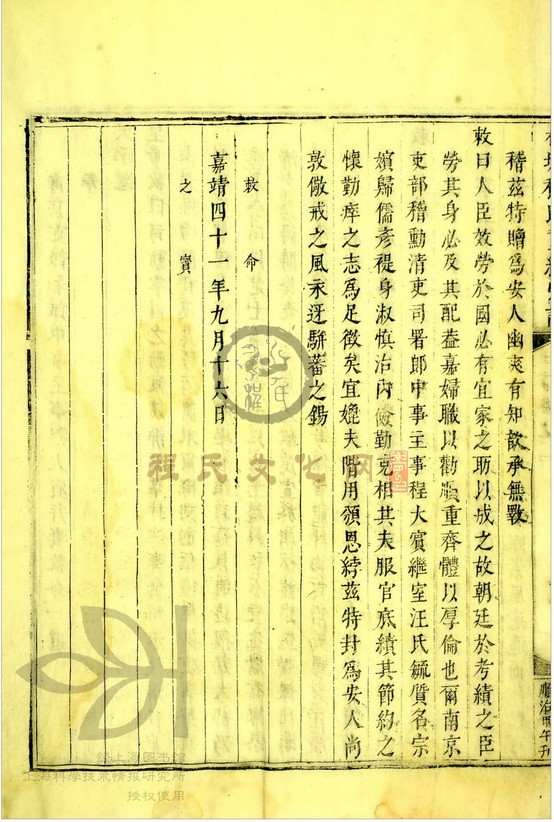 稽茲特贈為安人幽爽有知歆承無斁
敕曰人臣效勞於國必有宜家之助以成之故朝廷於考績之臣
勞其身必及其配葢嘉婦職以勸順重齊體以厚倫也爾南京
吏部稽勳清吏司署郎中事主事程大賓繼室汪氏毓質名宗
嬪歸儒彥禔身淑慎治內儉勤克相其夫服官底績其節約之
懷勤瘁之志為足徵矣宜媲夫階用頒恩綍茲特封為安人尚
敦儆戒之風永迓駢蕃之錫
敕命
嘉靖四十一年九月十六日
之寶
順治甲午刋
程氏文化网
上海科學技術情报研究所
授权使用